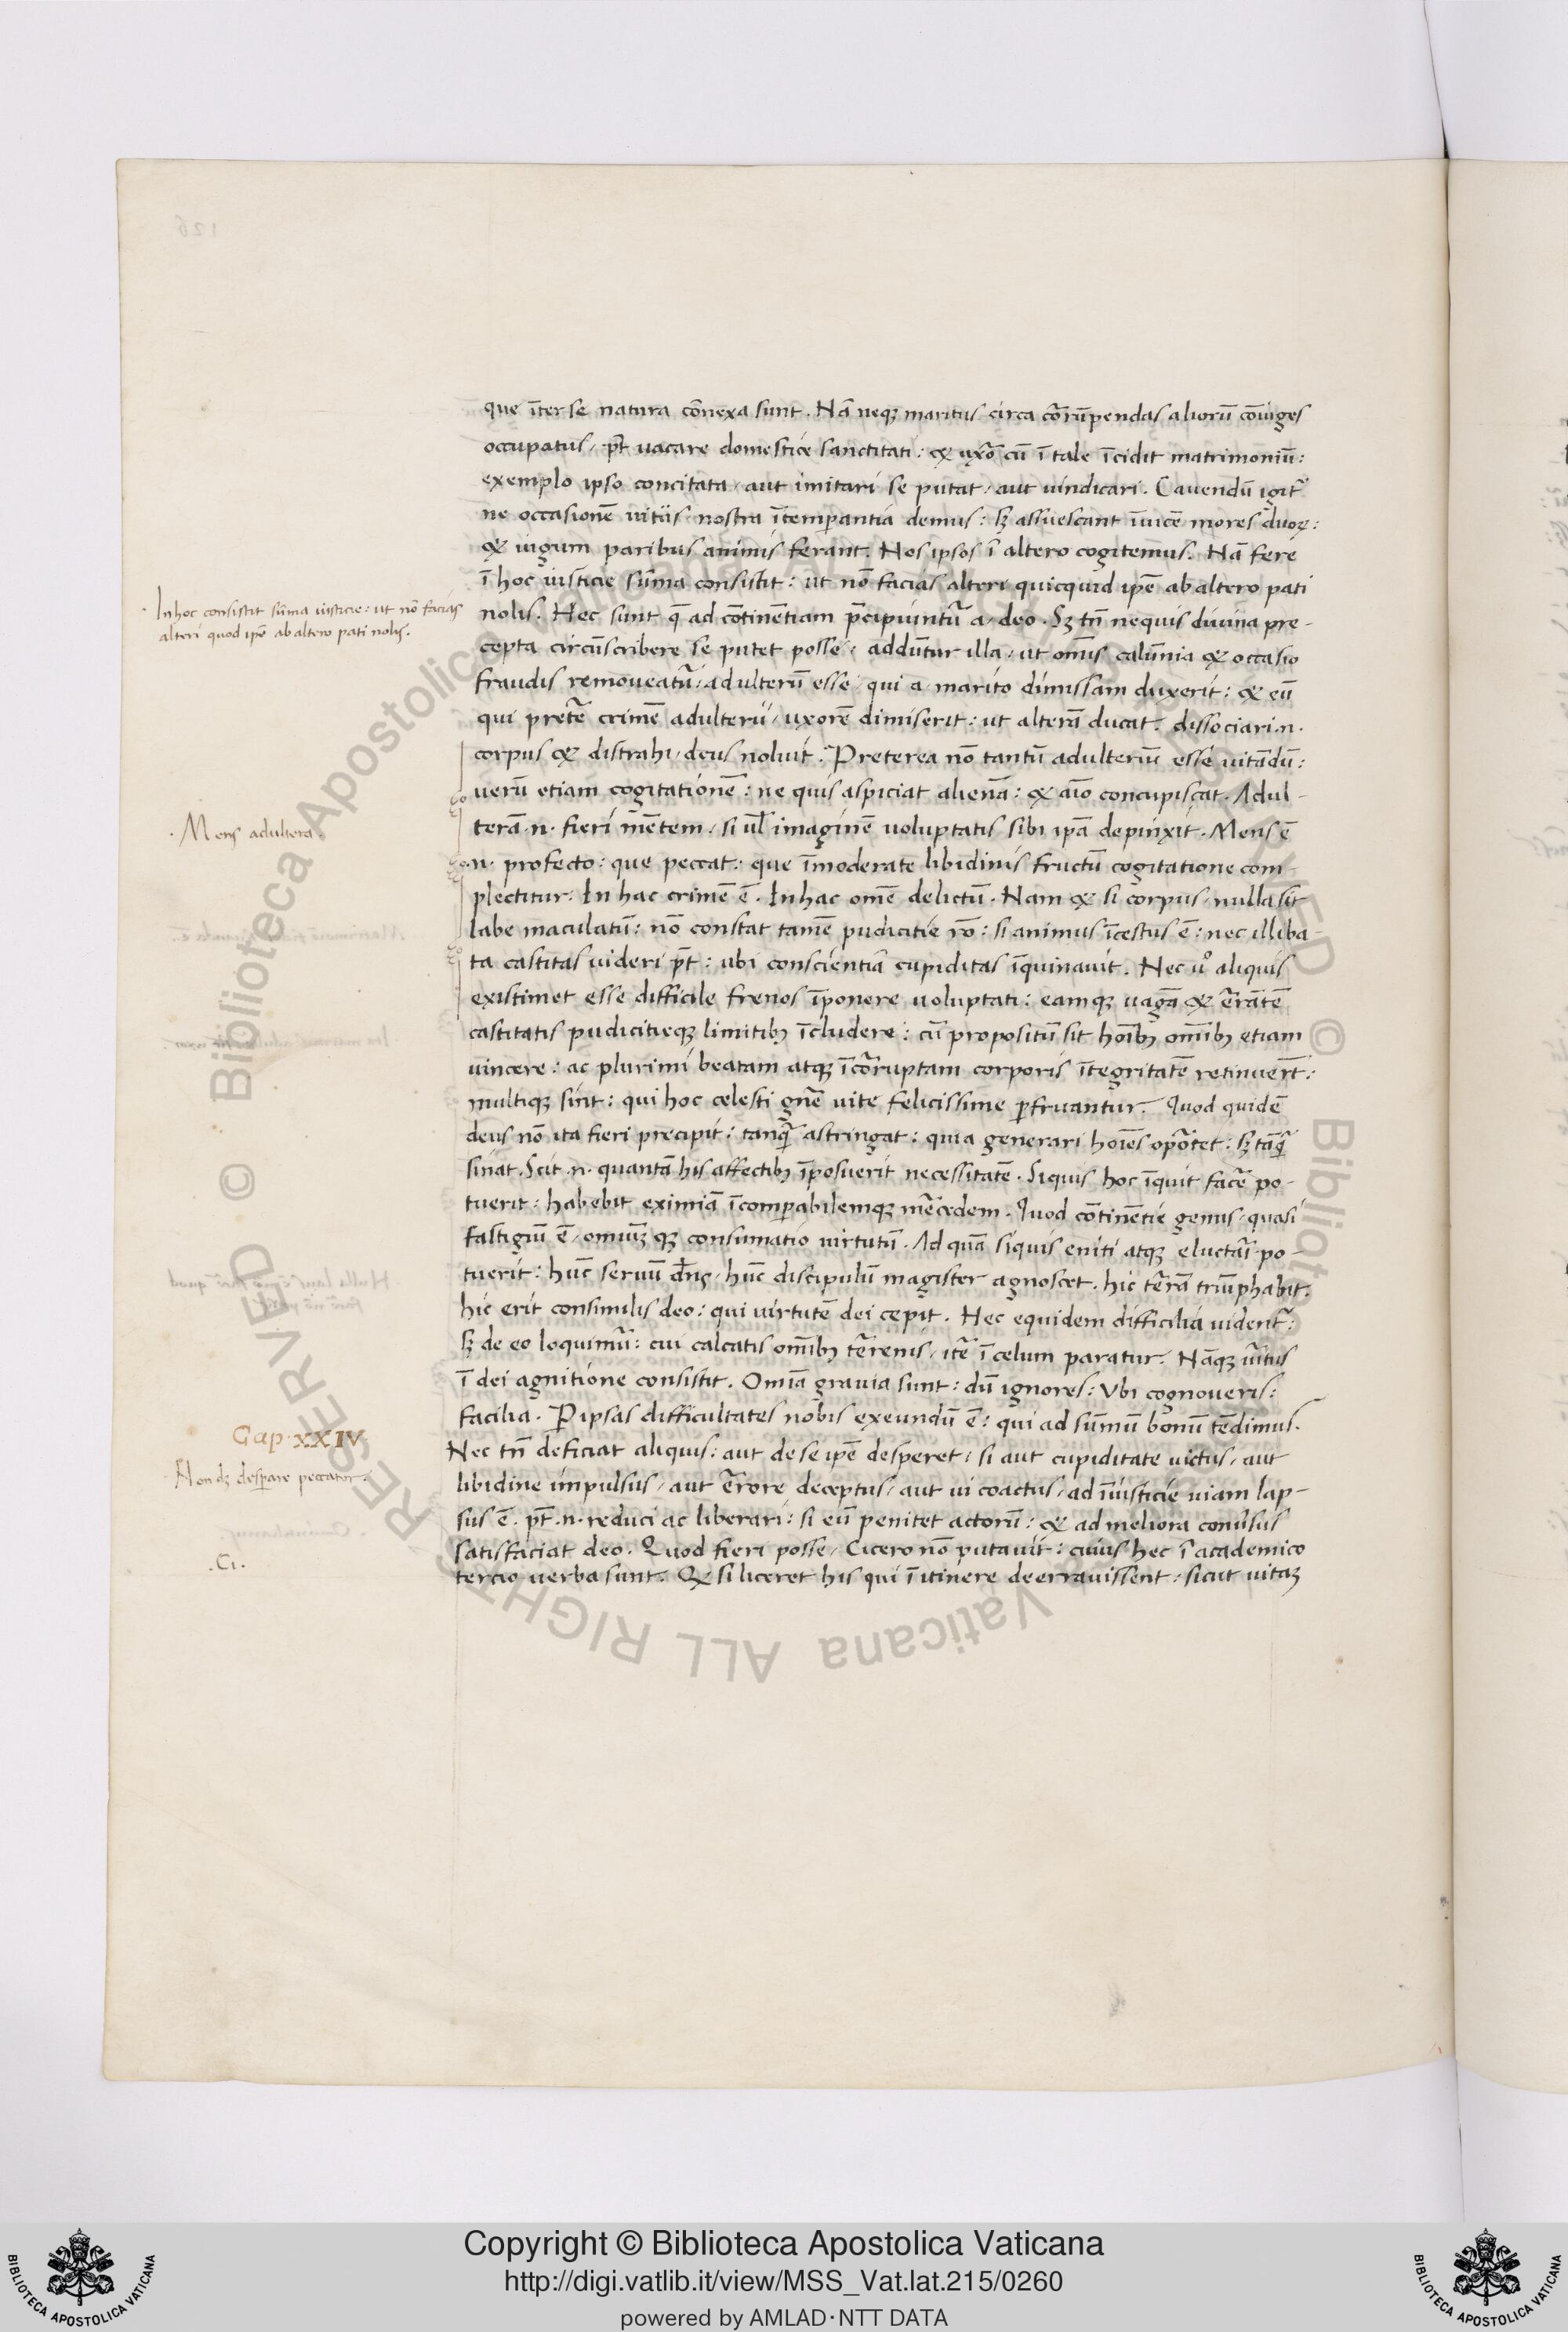 que īter se natura cōnexa sunt. Nā neqꝫ maritus circa cōrūpendas aliorū cōiuges
occupatus, pt̄ uacare domestice sanctitati: & uxōr cū ī tale īcidit matrimoniū:
exemplo ipso concitata, aut imitari se putat, aut uindicari. Cauendū igit᷑
ne occasionē uitiis nostra ītemperantia demus: sꝫ assuescant īuicē mores duoꝝ:
& iugum paribus animis ferant. Nos ipsos ī altero cogitemus. Nā fere
ī hoc iusticie sūma consistit: ut nō facias alteri quicquid ipē ab altero pati
nolis. Hec sunt q̄ ad cōtinētiam p̄cipiuntur᷑ a deo. Sꝫ tn̄ nequis diuina pre-
cepta circūscribere se putet posse, addūtur illa, ut omīs calūnia & occasio
fraudis remoueat᷑, adulterū esse, qui a marito dimissam duxerit: & eū
qui pretē crimē adulterii, uxorē dimiserit: ut alterā ducat. dissociari .n.
corpus & distrahi, deus noluit. Preterea nō tantū adulteriū esse uitādū:
uerū etiam cogitationē: ne quis aspiciat alienā: & aīo concupiscat. Adul-
terā .n. fieri mētem, si ul̄ imaginē uoluptatis sibi ipā depinxit. Mens ē
.n. profecto: que peccat: que īmoderate libidinis fructū cogitatione com-
plectitur. In hac crimē ē. In hac omē delictū. Nam & si corpus, nulla sit
labe maculatū: nō constat tamē pudicitie rō: si animus īcestus ē: nec illiba-
ta castitas uideri pt̄: ubi conscientiā cupiditas īquinauit. Nec uº aliquis
existimet esse difficile frenos īponere uoluptati: eamqꝫ uagā & ērātē
castitatis pudicitieqꝫ limitibꝫ īcludere: cū propositū sit hoībꝫ omībꝫ etiam
uincere: ac plurimi beatam atqꝫ īcōrruptam corporis ītegritatē retinuerīt:
multiqꝫ sint: qui hoc celesti gn̄e uite felicissime ꝑfruantur. Quod quidē
deus nō ita fieri precipit: tanqꝫ astringat: quia generari hoīes oportet: sꝫ tāqꝫ
sinat. Scit .n. quantā his affectibꝫ īposuerit necessitatē. Siquis hoc īquit facē po-
tuerit: habebit eximiā īcomꝑabilemqꝫ mēcedem. Quod cōtinētie genus, quasi
fastigiū ē, omiūꝫ qꝫ consumatio uirtutū. Ad quā siquis eniti atqꝫ eluctari po-
tuerit: hūc seruū dn̄s, hūc discipulū magister agnoscet. hic tērā triūphabit.
hic erit consimilis deo: qui uirtutē dei cepit. Hec equidem difficilia uident᷑:
sꝫ de eo loquimur᷑: cui calcatis omībꝫ tērenis, itē ī celum paratur. Nāqꝫ uītus
ī dei agnitione consistit. Omīa grauia sunt: dū ignores: Vbi cognoueris:
facilia. P ipsas difficultates nobis exeundū ē: qui ad sūmū bonū tēdimus.
Nec tn̄ deficiat aliquis: aut de se ipē desperet, si aut cupiditate uictus, aut
libidine impulsus, aut ērrore deceptus, aut ui coactus, ad īiusticie uiam lap-
sus ē. pt̄ .n. reduci ac liberari: si eū penitet actorū: & ad meliora conuersus
satisfaciat deo. Quod fieri posse, Cicero nō putauit: cuius hec ī academico
tercio uerba sunt. Q si liceret his qui ī itinere deerrauissent: sicut uitaꝫ
In hoc consistit sūma iusticie: ut nō facias
alteri quod ipē ab altero pati nolis.
.Mens adultera.
Cap. XXIV
Non dꝫ desꝑare peccator.
.Ci.
126
© Biblioteca Apostolica Vaticana ALL RIGHTS RESERVED
Copyright © Biblioteca Apostolica Vaticana
http://digi.vatlib.it/view/MSS_Vat.lat.215/0260
powered by AMLAD·NTT DATA
BIBLIOTECA APOSTOLICA VATICANA
BIBLIOTECA APOSTOLICA VATICANA